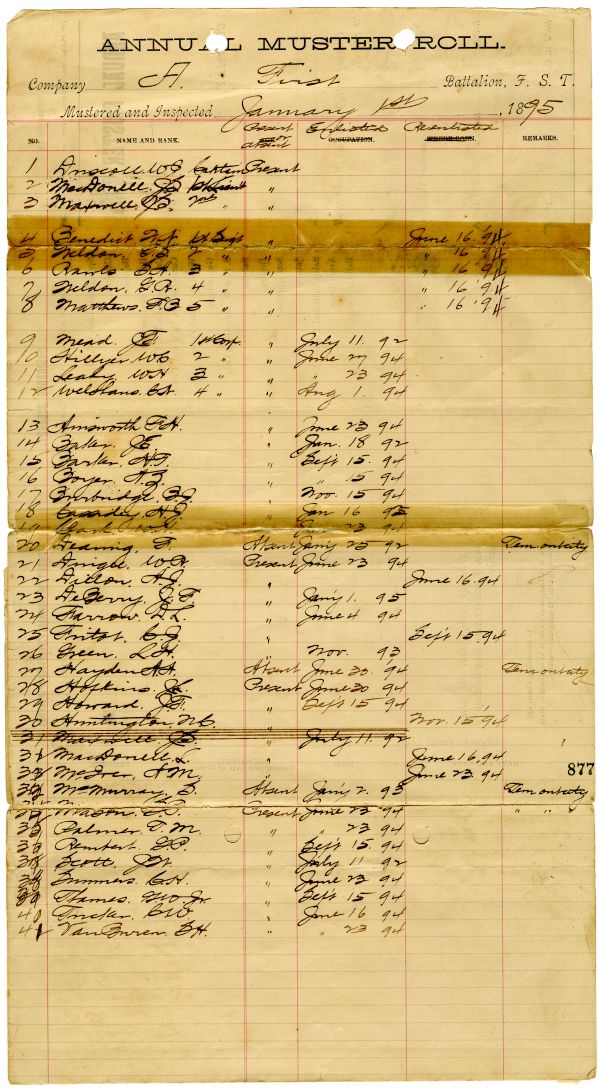 ANNUAL MUSTER ROLL.
Company A. First Battalion, F. S. T.
Mustered and Inspected January 1st, 1895
Present or absent Enlisted Reenlisted
NO. NAME AND RANK. OCCUPATION. WHERE BORN. REMARKS.
1 Driscoll. W J Captain Present
2 MacDonell. J B 1st Lieut "
3 Maxwell J B. 2nd "
4 Benedict 1st Sgt " June 16. '94
5 Weldon. 2 " " " 16 '94
6 Rawls 3 " " " 16 '94
7 Weldon. G. R. 4 " " " 16 '94
8 Matthews. 5 " " 16 '94
9 Mead. 1st Corp " July 11. 92
10 Hillyer W C 2 " " June 27 94
11 Leahy W H 3 " " " 23 94
12 4 " " Aug 1. 94
13 Ainsworth F. H. " June 23 94
14 Baker. J E. " Jan. 18 92
15 Barker. " Sept 15. 94
16 Boyer. " " 15 94
17 Burbridge. B J " Nov. 15 94
18 Cassidy " Jan 16 95
19 Clark " 23 94
20 Absent Jan'y 25 92 Tem ontcity
21 Present June 23 94
22 Dillon. A. J. " June 16. 94
23 DeBerry. J. F " Jan'y 1. 95
24 Farrow. D. L. " June 4 94
25 Fritot. C J. " Sept 15. 94
26 Green. L. H. " Nov. 93
27 Hayden Absent June 30. 94 Tem ontcity
28 Hopkins Present June 30 94
29 Howard. " Sept 15 94
30 Huntington. " Nov. 15 94
31 Maxwell J B. " July 11. 92
31 MacDonell " June 16, 94
32 McIver. N M. " June 23 94
877
33 McMurray. Absent Jan'y 2. 93 Tem ontcity
34 Mason. Present June 23 94 " "
35 Palmer. T. M. " " 23 94
36 Rembert. " Sept 15. 94
37 Scott. " July 11 92
38 Summers. C. H. " June 23 94
39 Thames. Jr " Sept 15 94
40 Tucker. " June 16 94
41 Van Buren. " " 23 94